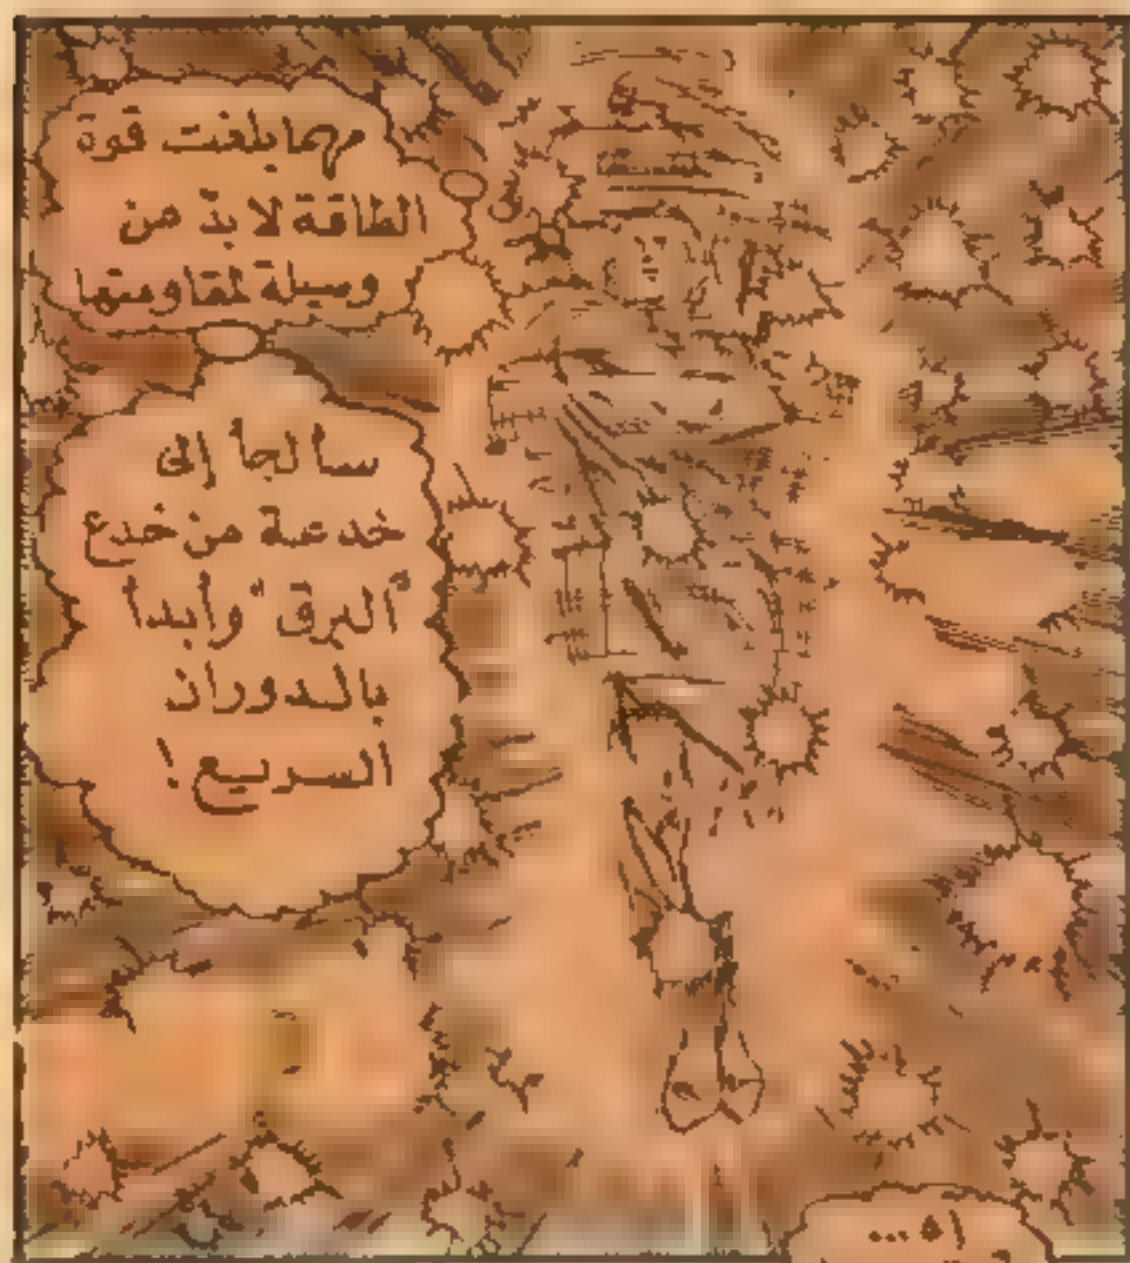 مهما بلغت قوة
الطاقة لا بدّ من
وسيلة لمقاومتها
سألجأ إلى
خدعة من خدع
"البرق" وأبدأ
بالدوران
السريع!